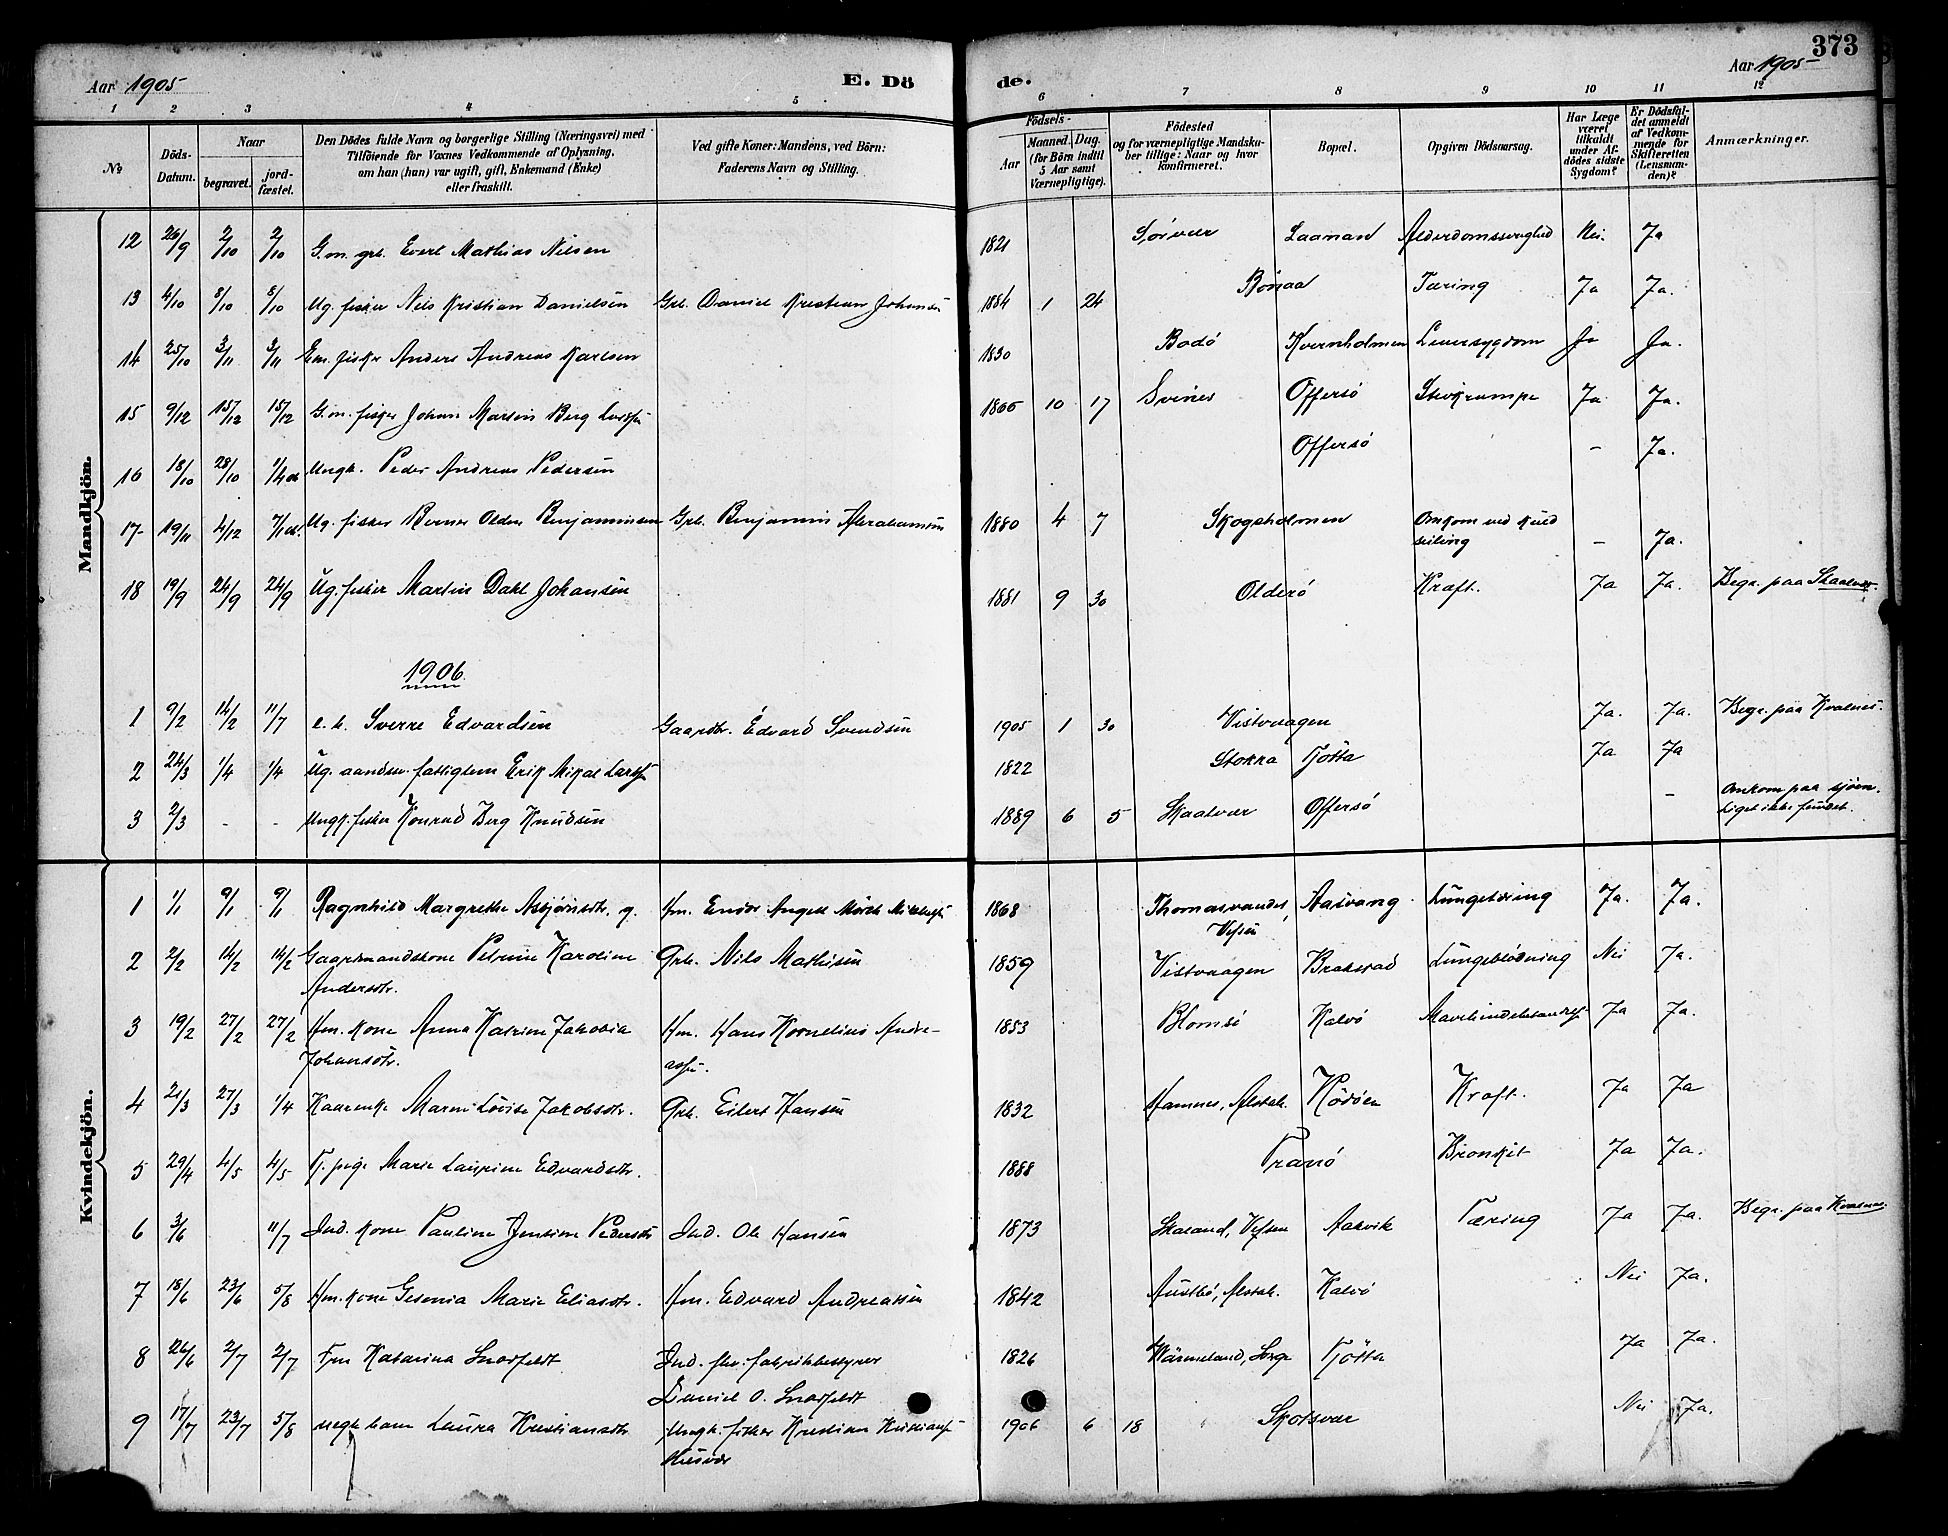 373
Aar 1905 E. Dö de. Aar 1905
1 2 3 4 5 6 7 8 9 10 11 12
№
Döds-Datum.
Naar
begravet.
jord-fæstet.
Den Dödes fulde Navn og borgerlige Stilling (Næringsvei) med
Tilföiende for Voxnes Vedkommende af Oplysning.
om han (hun) var ugift, gift, Enkemand (Enke)
eller fraskilt.
Ved gifte Koner: Mandens, ved Börn:
Faderens Navn og Stilling.
Födsels-
Aar
Maaned. Dag.
(for Börn indtil
5 Aar samt
Værnepligtige).
Födested
og for værnepligtige Mandska-
ber tillige: Naar og hvor
konfirmeret.
Bopæl.
Opgiven Dödsaarsag.
Har Læge
været
tilkaldt
under Af-
dödes sidste
Sygdom?
Er Dödsfal-
det anmeldt
af Vedkom-
mende for
Skifteretten
(Lensman-
den)?
Anmærkninger.
Mandkjön.
12 26/9 2/10 2/10 G.m. grb. Evert Mathias Nilsen 1821 Sörvær Laanan Alderdomssvaghed Nei. Ja
13 4/10 8/10 8/10 Ug. fisker Nils Kristian Danielsen Grb. Daniel Kristian Johansen 1884 1 24 Tæring Ja Ja.
14 25/10 3/11 3/11 Em. fisker Anders Andreas Karlsen 1830 Bodö Kvernholmen Leversygdom Ja Ja.
15 9/12 15/12 15/12 G.m. fisker Johan Martin Berg 10 17 Svines Offersö Ja Ja.
16 18/10 28/10 Ungk. Peder Andreas Pedersen Offersö – Ja.
17 19/11 4/12 Ug. fisker Benjaminsen Grb. Benjamin Abrahamsen 1880 4 7 Skogsholmen Omkom ved
seiling – Ja.
18 19/9 24/9 24/9 Ug. fisker Martin Dahl Johansen 1881 9 30 Olderö Kræft. Ja Ja. Begr. paa Skaalvær.
1906
1 9/2 14/2 11/7 e.b. Sverre Edvardsen Gaardbr. Edvard Svendsen 1905 1 30 Vistvaagen Ja. Ja. Begr. paa Kvalnes.
2 24/3 1/4 1/4 Ug. fattiglem Erik Mikal 1822 Stokka Tjötta Ja Ja
3 2/3 - - Ungk. fisker Konrad Berg Knudsen 1889 6 5 Skaalvær Offersö – Omkom paa sjöen.
Liget ikke fundet.
Kvindekjön.
1 1/1 9/1 9/1 Ragnhild Margrethe Asbjörnsdtr. g. Hm. Angell 1868 Thomasvandet,
Vefsen Aasvang Lungetæring Ja. Ja.
2 2/2 14/2 14/2 Gaardmandskone Petrine Karoline
Andersdtr. Grb. Nils Mathisen 1859 Vistvaagen Lungeblödning Nei Ja.
3 19/2 27/2 27/2 Hm. kone Anna Katrine Jakobia
Johansdtr. Hm. Hans Kornelius Andre-
assen. 1853 Blomsö Kalvö Ja Ja.
4 21/3 27/3 1/4 Maren Lovise Jakobsdtr. Grb. Eilert Hansen 1832 Hamnes, Alstah. Rödöen Kræft. Ja Ja
5 29/4 4/5 4/5 Tj. pige Marie Laurine Edvardsdtr. 1888 Tranö Bronkit Ja Ja.
6 3/6 11/7 Ind. kone Pauline Jensine Pedersdtr Ind. Ole Hansen 1873 Skaland, Vefsen Aakvik Tæring Ja Ja. Begr. paa Kvalnes.
7 18/6 23/6 5/8 Hm. kone Gesenia Marie Eliasdtr. Hm. Edvard Andreassen 1842 Austbö, Alstah. Kalvö Nei Ja.
8 26/6 2/7 2/7 Katarina Ind. fhv. fabrikbestyrer
Daniel O. 1826 Wärmeland, Tjötta Ja Ja.
9 17/7 23/7 5/8 Laura Kristiansdtr Ungk. fisker Kristian
Husvær 1906 6 18 Skotsvær Nei Ja.